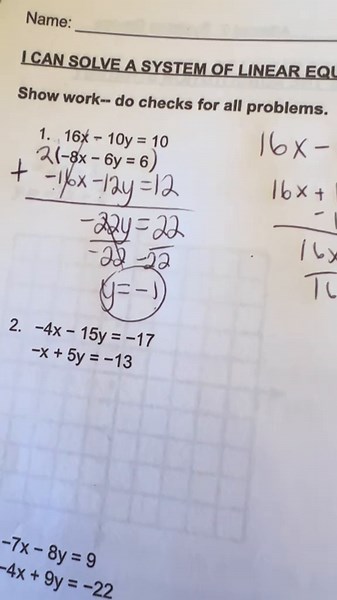 Name:
I CAN SOLVE A SYSTEM OF LINEAR EQU
Show work-- do checks for all problems.
1. 16x – 10y = 10
2(-8x – 6y = 6)
+ -16x -12y = 12
-22y = 22
-22 -22
y = -1
16x -
16x +
16x
2. -4x – 15y = -17
-x + 5y = -13
-7x – 8y = 9
-4x + 9y = -22